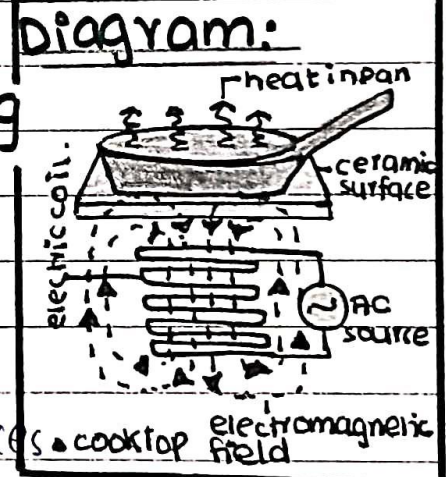 Diagram:
g
heat in pan
ceramic
surface
electric coil.
AC
source
es. cooktop
electromagnetic
field